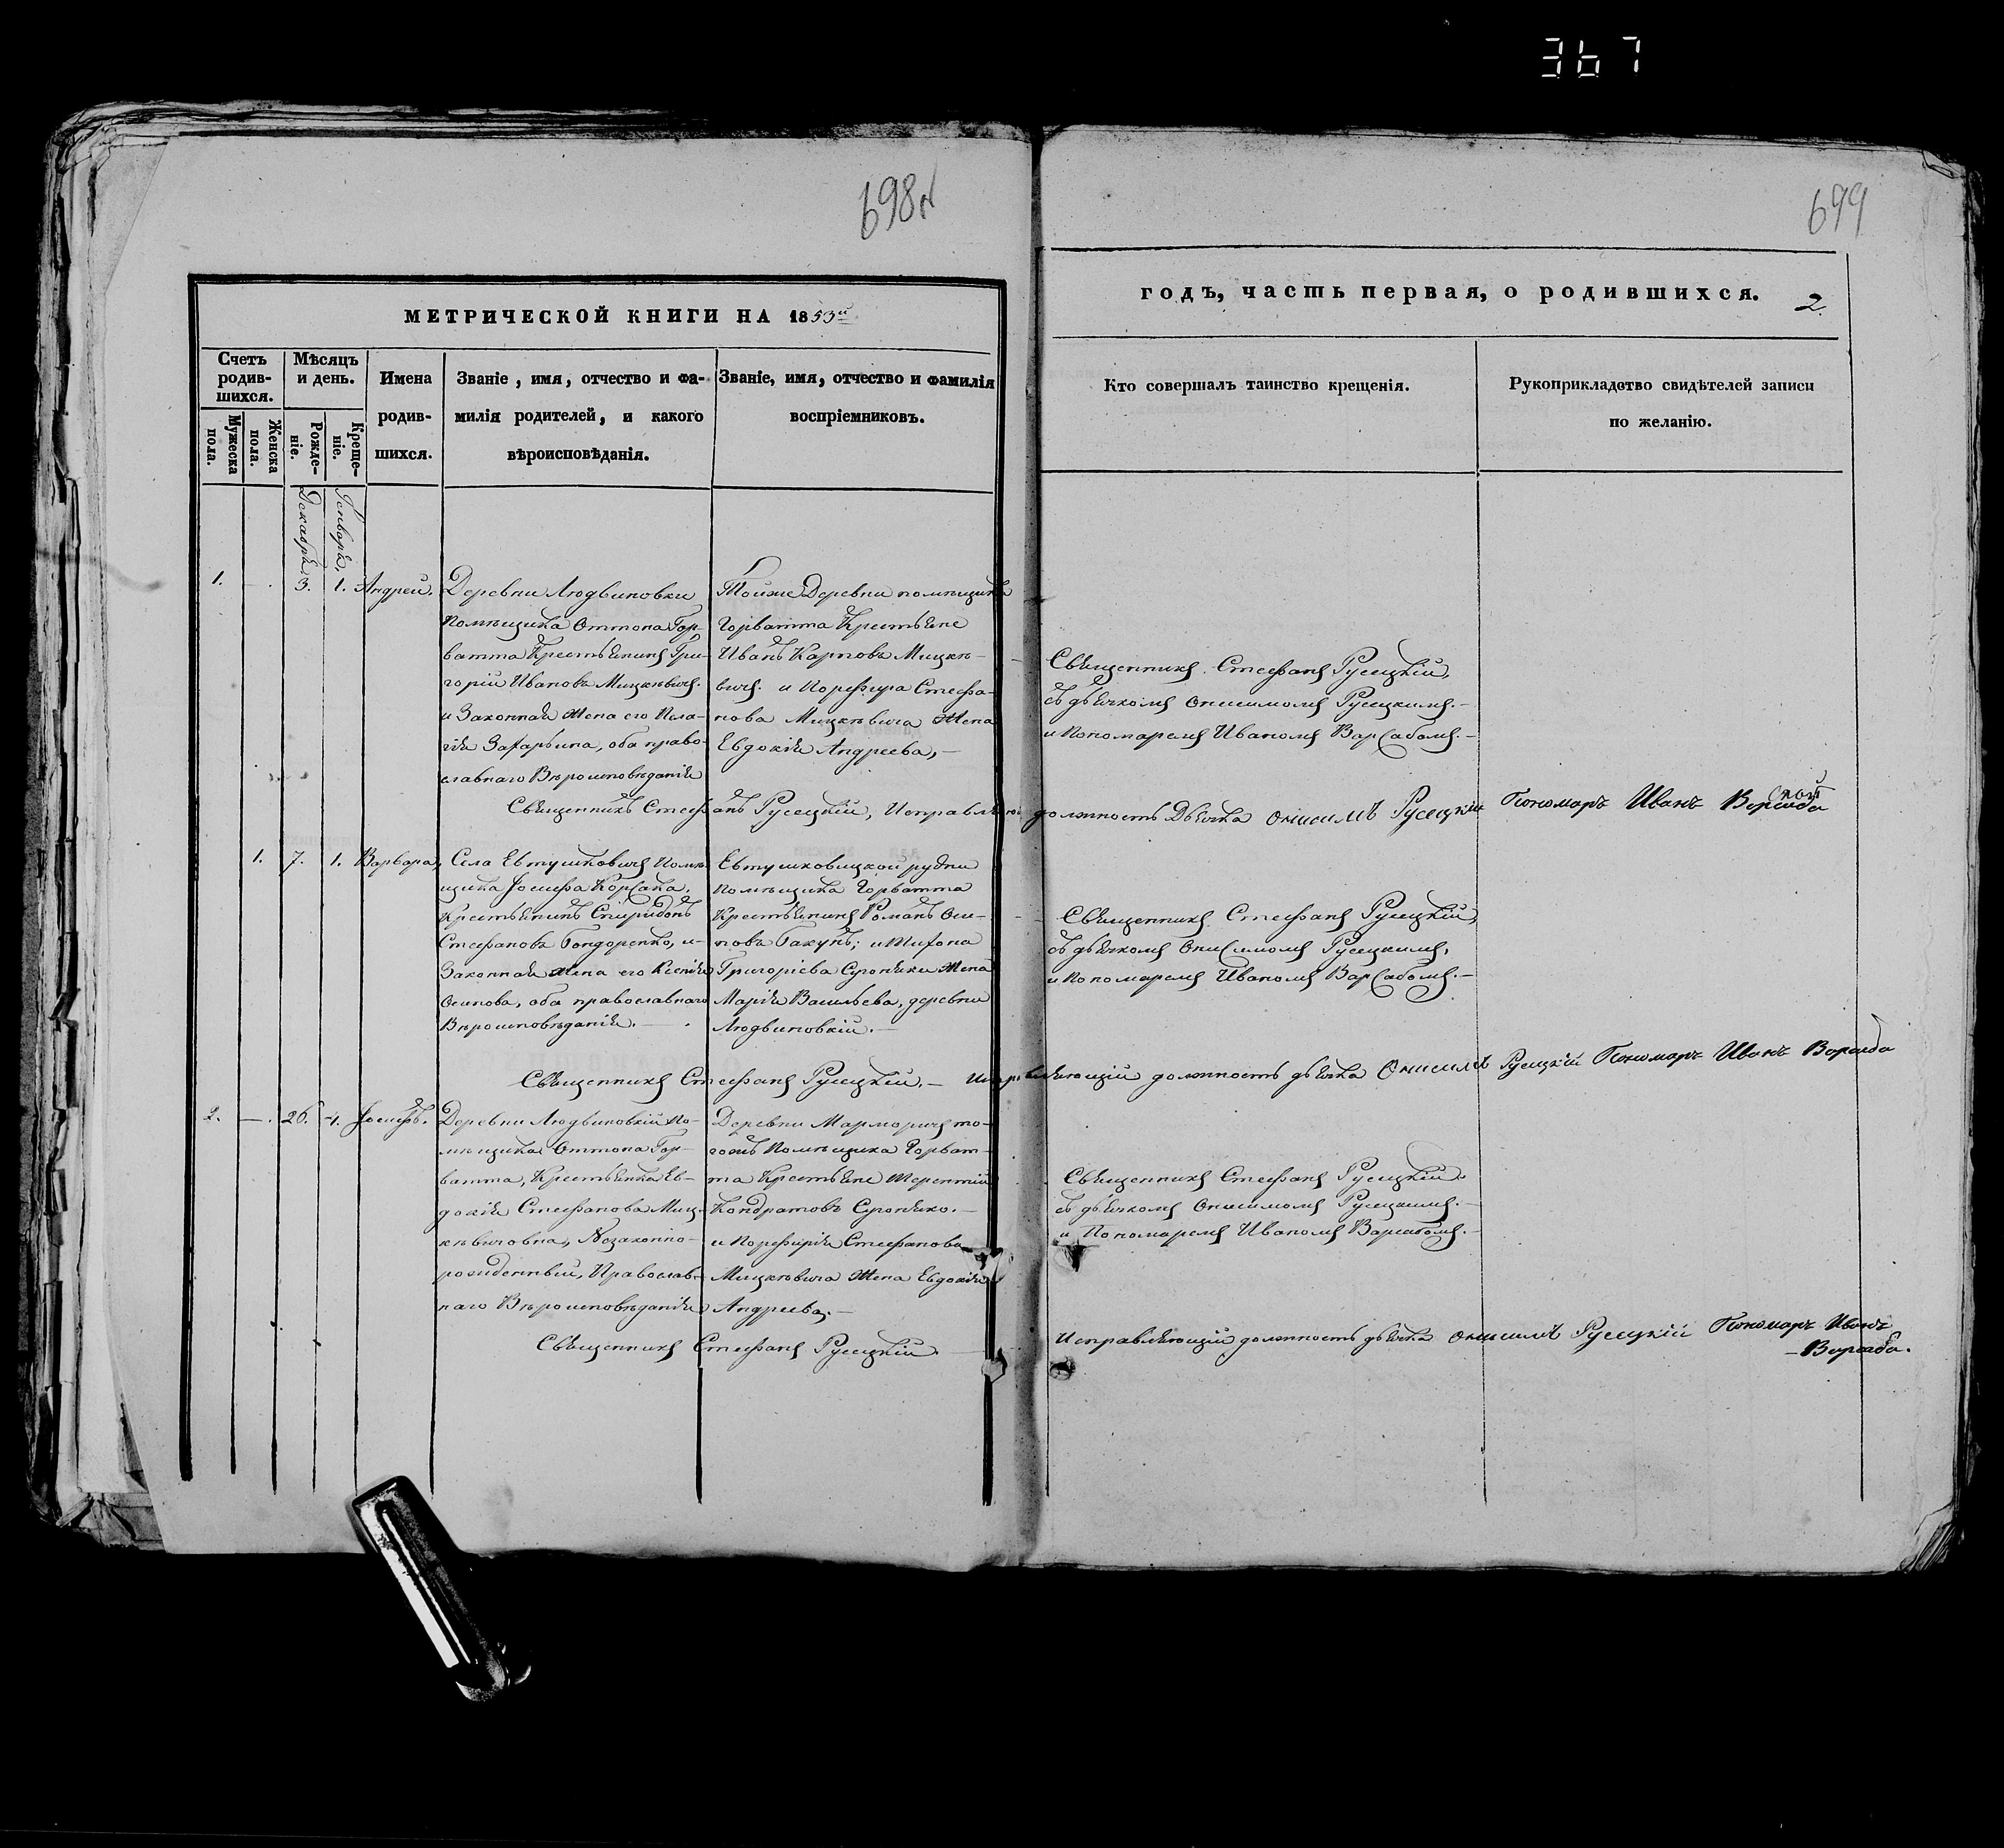 367
698
699
МЕТРИЧЕСКОЙ КНИГИ НА 1853й
годъ, часть первая, о родившихся. 2.
Счетъ родив-шихся.
Мужеска пола.
Женска пола.
Мѣсяцъ и день.
Рожде-ніе.
Креще-ніе.
Имена родив-шихся.
Званіе, имя, отчество и фа-
милія родителей, и какого
вѣроисповѣданія.
Званіе, имя, отчество и фамилія
воспріемниковъ.
Кто совершалъ таинство крещенія.
Рукоприкладство свидѣтелей записи
по желанію.
Декабрь.
Генварь.
1. — 3. 1. Андрей.
Деревни Людвиновки
Помѣщика Оттона Гор-
ватта Крестьянинъ Гри-
горій Ивановъ Мицкѣвичъ.
и Законная Жена его Пела-
гія Захарьина, оба право-
славнаго Вѣроисповѣданія
Тойже Деревни помѣщика
Горватта Крестьяне
Иванъ Карповъ Мицкѣ-
вичъ. и Порфира Стефа-
нова Мицкѣвича Жена
Евдокія Андреева, —
Священникъ Стефанъ Русецкій,
съ дьячкомъ Онисимомъ Русецкимъ. —
и Пономаремъ Иваномъ Варсабомъ. —
Священникъ Стефанъ Русецкій, Исправляю должность Дьячка Онисимъ Русецкій Пономарь Иванъ Варсаба
1. 7. 1. Варвара,
Села Евтушковичъ Помѣ-
щика Іосифа Корсака,
Крестьянинъ Спиридонъ
Стефановъ Бондоренко, и-
Законная Жена его Ксенія
Осипова, оба православнаго
Вѣроисповѣданія. —
Евтушковицкой рудни
Помѣщика Горватта
Крестьянинъ Романъ Оси-
повъ Бакунъ; и Тихона
Григоріева Суроняки Жена
Марія Васильева, деревни
Людвиновкій. —
Священникъ Стефанъ Русецкій,
съ дьячкомъ Онисимомъ Русецкимъ,
и Пономаремъ Иваномъ Варсабомъ. —
Священникъ Стефанъ Русецкій. — Исправляющій должность дьячка Онисимъ Русецкій Пономарь Иванъ Варсаба
2. — 26. 4. Іосифъ.
Деревни Людвиновкій По-
мѣщика Оттона Гор-
ватта, Крестьянка Ев-
докія Стефанова Миц-
кѣвичовна, Незаконно-
рожденный, Православ-
наго Вѣроисповѣданія
Деревни Марморичъ то-
гожъ Помѣщика Горват-
та Крестьяне Терентій
Кондратовъ Суроняко. —
и Порфирія Стефанова
Мицкѣвича Жена Евдокія
Андреева. —
Священникъ Стефанъ Русецкій.
съ дьячкомъ Онисимомъ Русецкимъ. —
и Пономаремъ Иваномъ Варсабомъ. —
Священникъ Стефанъ Русецкій. Исправляющій должность дьячка Онисимъ Русецкій Пономарь Иванъ
— Варсаба.